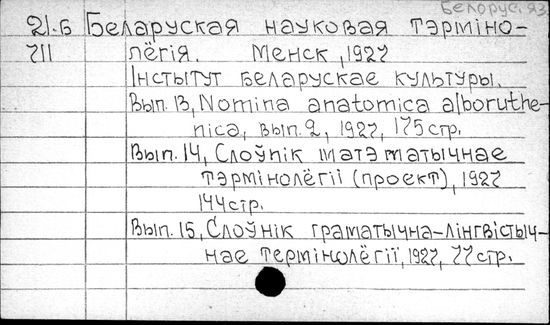 Белорус. яз
21.6 Беларуская науковая тэрміно-
711 лёгія. Менск, 1927
Інстытут Беларускае культуры.
Вып. 13, Nomina anatomica alboruthe-
nica, вып. 2, 1927, 175 стр.
Вып. 14, Слоўнік матэматычнае
тэрмінолёгіі (проект), 1927
144 стр.
Вып. 15, Слоўнік граматычна-лінгвістыч-
нае термінолёгіі, 1927, 77 стр.